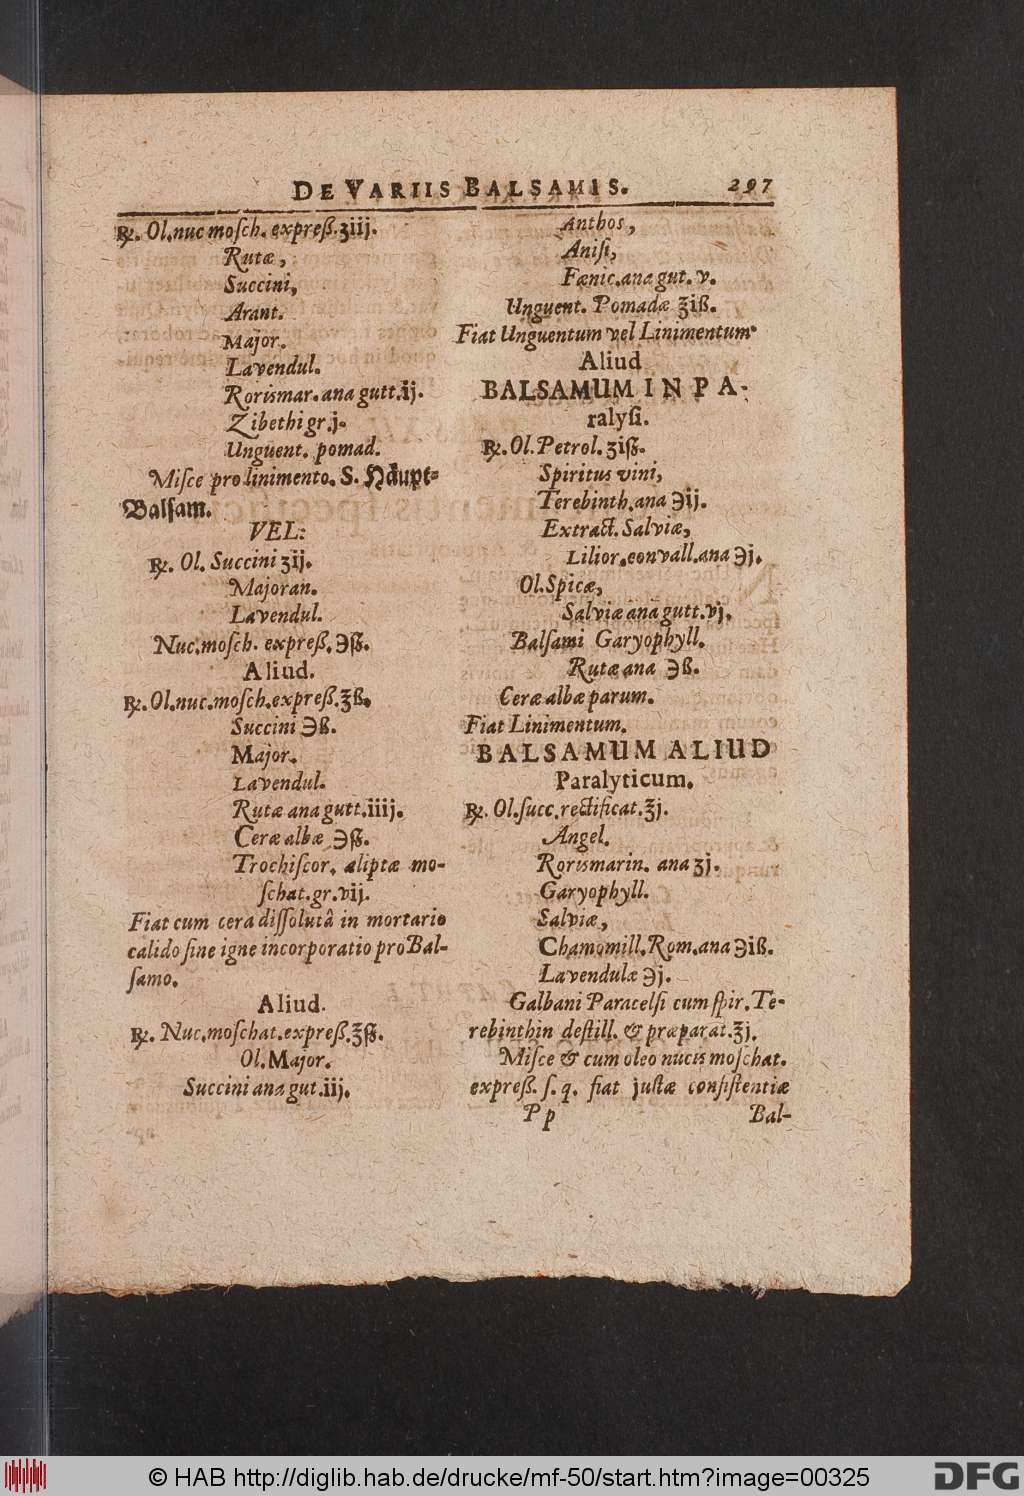 DE VARIIS BALSAMIS. 297
℞. Ol. nuc mosch. expreß. ʒiij.
Rutæ,
Succini,
Arant.
Major.
Lavendul.
Rorismar. ana gutt. ij.
Zibethi gr. j.
Unguent. pomad.
Misce pro linimento. S. Häupt=
Balsam.
VEL:
℞. Ol. Succini ʒij.
Majoran.
Lavendul.
Nuc. mosch. expreß. ℈ß.
Aliud.
℞. Ol. nuc. mosch. expreß. ʒß.
Succini ℈ß.
Major.
Lavendul.
Rutæ ana gutt. iiij.
Ceræ albæ ℈ß.
Trochiscor. aliptæ mo-
schat. gr. vij.
Fiat cum cera dissolutâ in mortario
calido sine igne incorporatio pro Bal-
samo.
Aliud.
℞. Nuc. moschat. expreß. ʒß.
Ol. Major.
Succini ana gut. iij.
Anthos,
Anisi,
Fænic. ana gut. v.
Unguent. Pomadæ ʒiß.
Fiat Unguentum vel Linimentum.
Aliud
BALSAMUM IN PA-
ralysi.
℞. Ol. Petrol. ʒiß.
Spiritus vini,
Terebinth. ana ℈ij.
Extract. Salviæ,
Lilior. convall. ana ℈j.
Ol. Spicæ,
Salviæ ana gutt. vj.
Balsami Garyophyll.
Rutæ ana ℈ß.
Ceræ albæ parum.
Fiat Linimentum.
BALSAMUM ALIUD
Paralyticum.
℞. Ol. succ. rectificat. ʒj.
Angel.
Rorismarin. ana ʒj.
Garyophyll.
Salviæ,
Chamomill. Rom. ana ℈iß.
Lavendulæ ℈j.
Galbani Paracelsi cum spir. Te-
rebinthin destill. & præparat. ʒj.
Misce & cum oleo nucis moschat.
expreß. s. q. fiat justæ consistentiæ
Pp Bal-
© HAB http://diglib.hab.de/drucke/mf-50/start.htm?image=00325 DFG